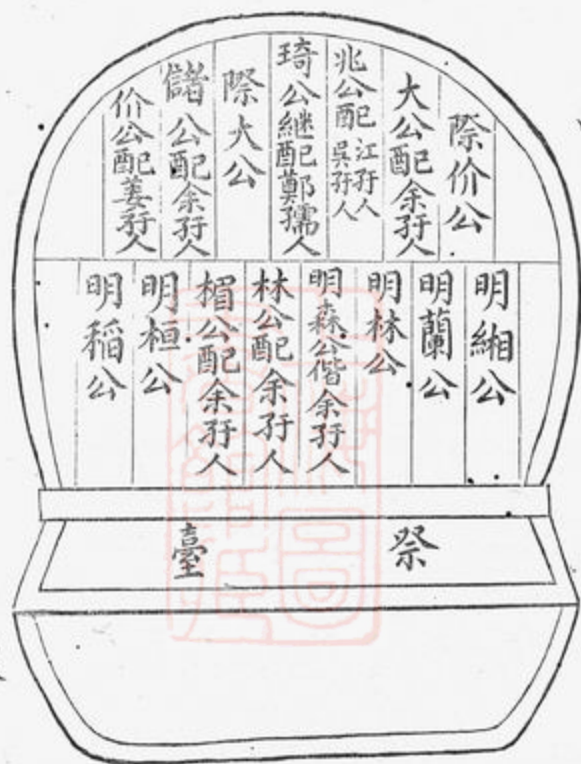 際价公
大公配余孺人
兆公配江孺人吳孺人
琦公繼配鄭孺人
際大公
儲公配余孺人
价公配姜孺人
明緗公
明蘭公
明林公
明森公偕余孺人
林公配余孺人
楣公配余孺人
明桓公
明稻公
祭臺